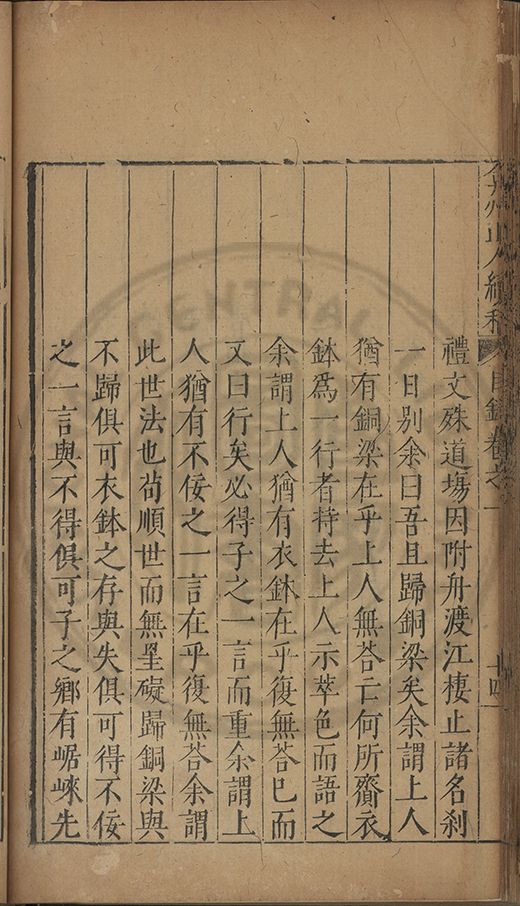 弇州山人續稿 目錄卷之一 十四
禮文殊道塲因附舟渡江棲止諸名刹
一日别余曰吾且歸銅梁矣余謂上人
猶有銅梁在乎上人無荅亡何所齎衣
鉢爲一行者持去上人示萃色而語之
余謂上人猶有衣鉢在乎復無荅已而
又曰行矣必得子之一言而重余謂上
人猶有不佞之一言在乎復無荅余謂
此世法也茍順世而無罣礙歸銅梁與
不歸俱可衣鉢之存與失俱可得不佞
之一言與不得俱可子之鄉有崌崍先
CENTRAL